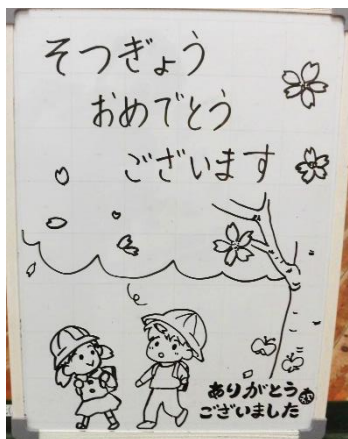 そつぎょう
おめでとう
ございます
ありがとう
ございました